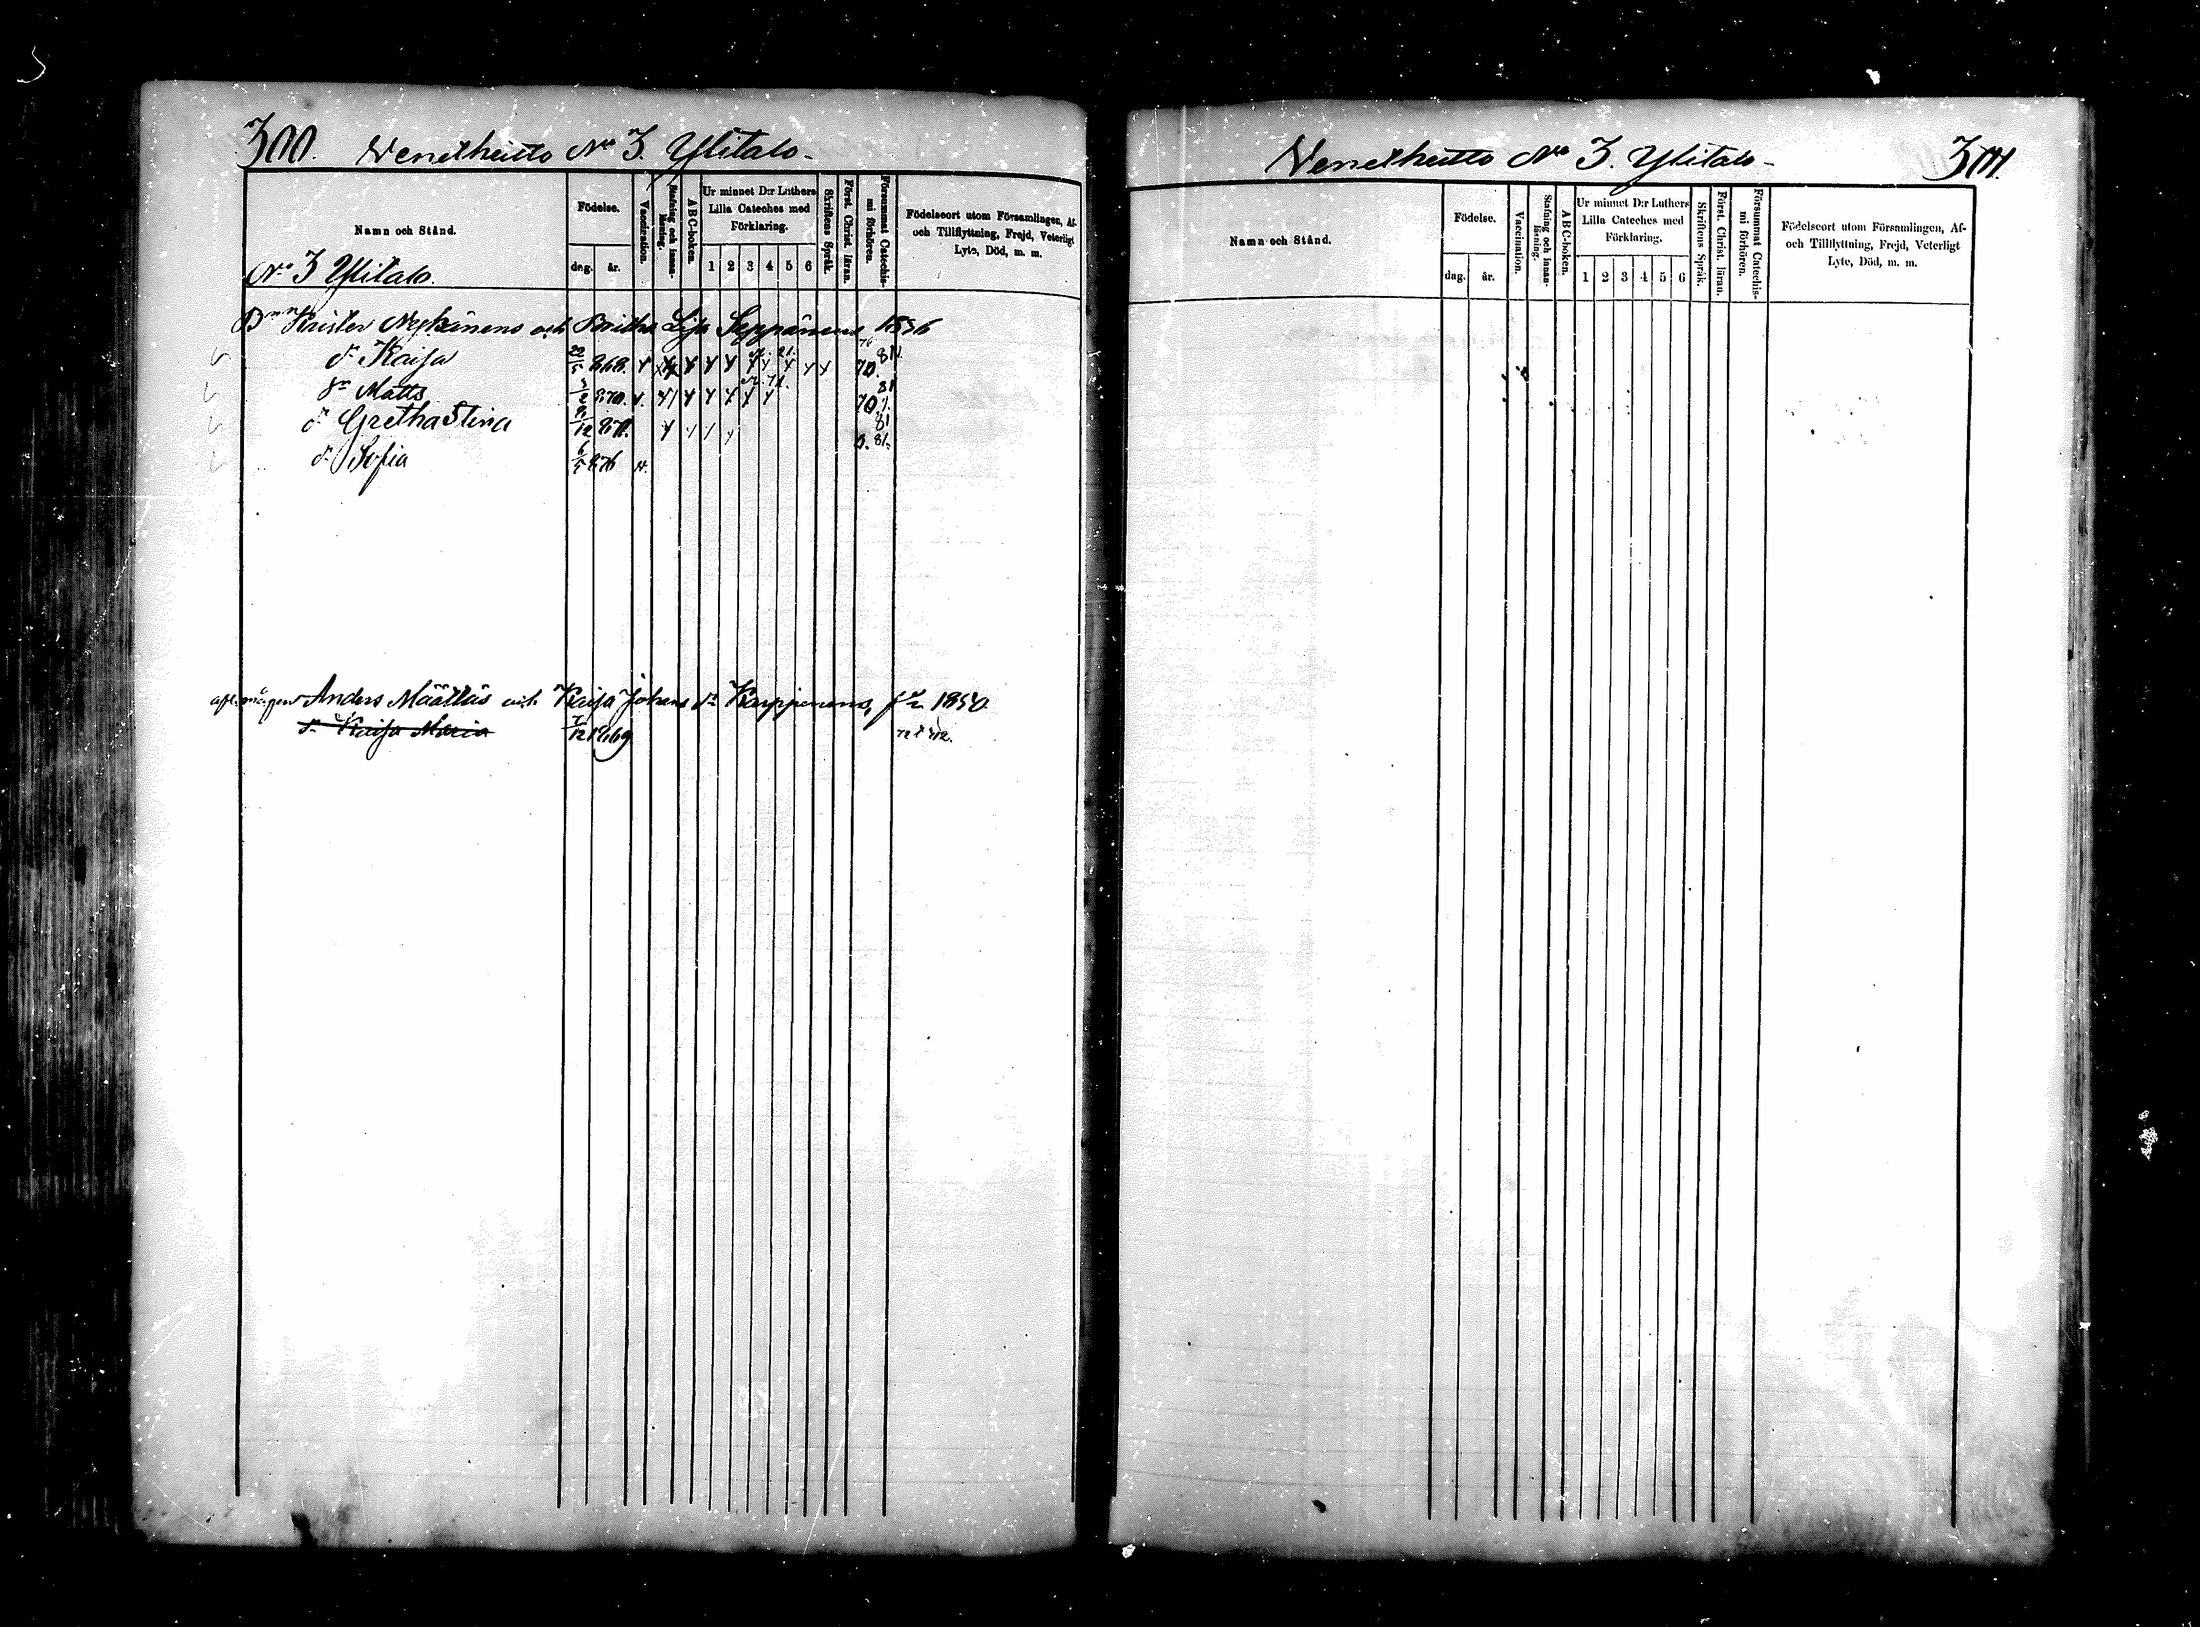 300. Venetheitto No 3. Ylitalo.
Namn och Stånd.
Födelse.
dag. år.
Vaccination.
Stafning och innanläsning.
ABC-boken.
Ur minnet D:r Luthers
Lilla Cateches med
Förklaring.
1 2 3 4 5 6
Skriftens Språk.
Först. Christ. läran.
Försummat Catechismi förhören.
Födelseort utom Församlingen, Af-
och Tillflyttning, Frejd, Veterligt
Lyte, Död, m. m.
No 3 Ylitalo.
Krister och Britha Lisa Seppänens 1836
dr Kaisa 868.
sn Matts 870.
dr Gretha Stina
dr Sofia 6/5 876
Anders Määttäs och Kaisa Johans dr Karppinens, 1850
dr Kaisa Maria 7/12 1869
Venetheitto No 3. Ylitalo - 301.
Namn och Stånd.
Födelse.
dag. år.
Vaccination.
Stafning och innanläsning.
ABC-boken.
Ur minnet D:r Luthers
Lilla Cateches med
Förklaring.
1 2 3 4 5 6
Skriftens Språk.
Först. Christ. läran.
Försummat Catechismi förhören.
Födelseort utom Församlingen, Af-
och Tillflyttning, Frejd, Veterligt
Lyte, Död, m. m.